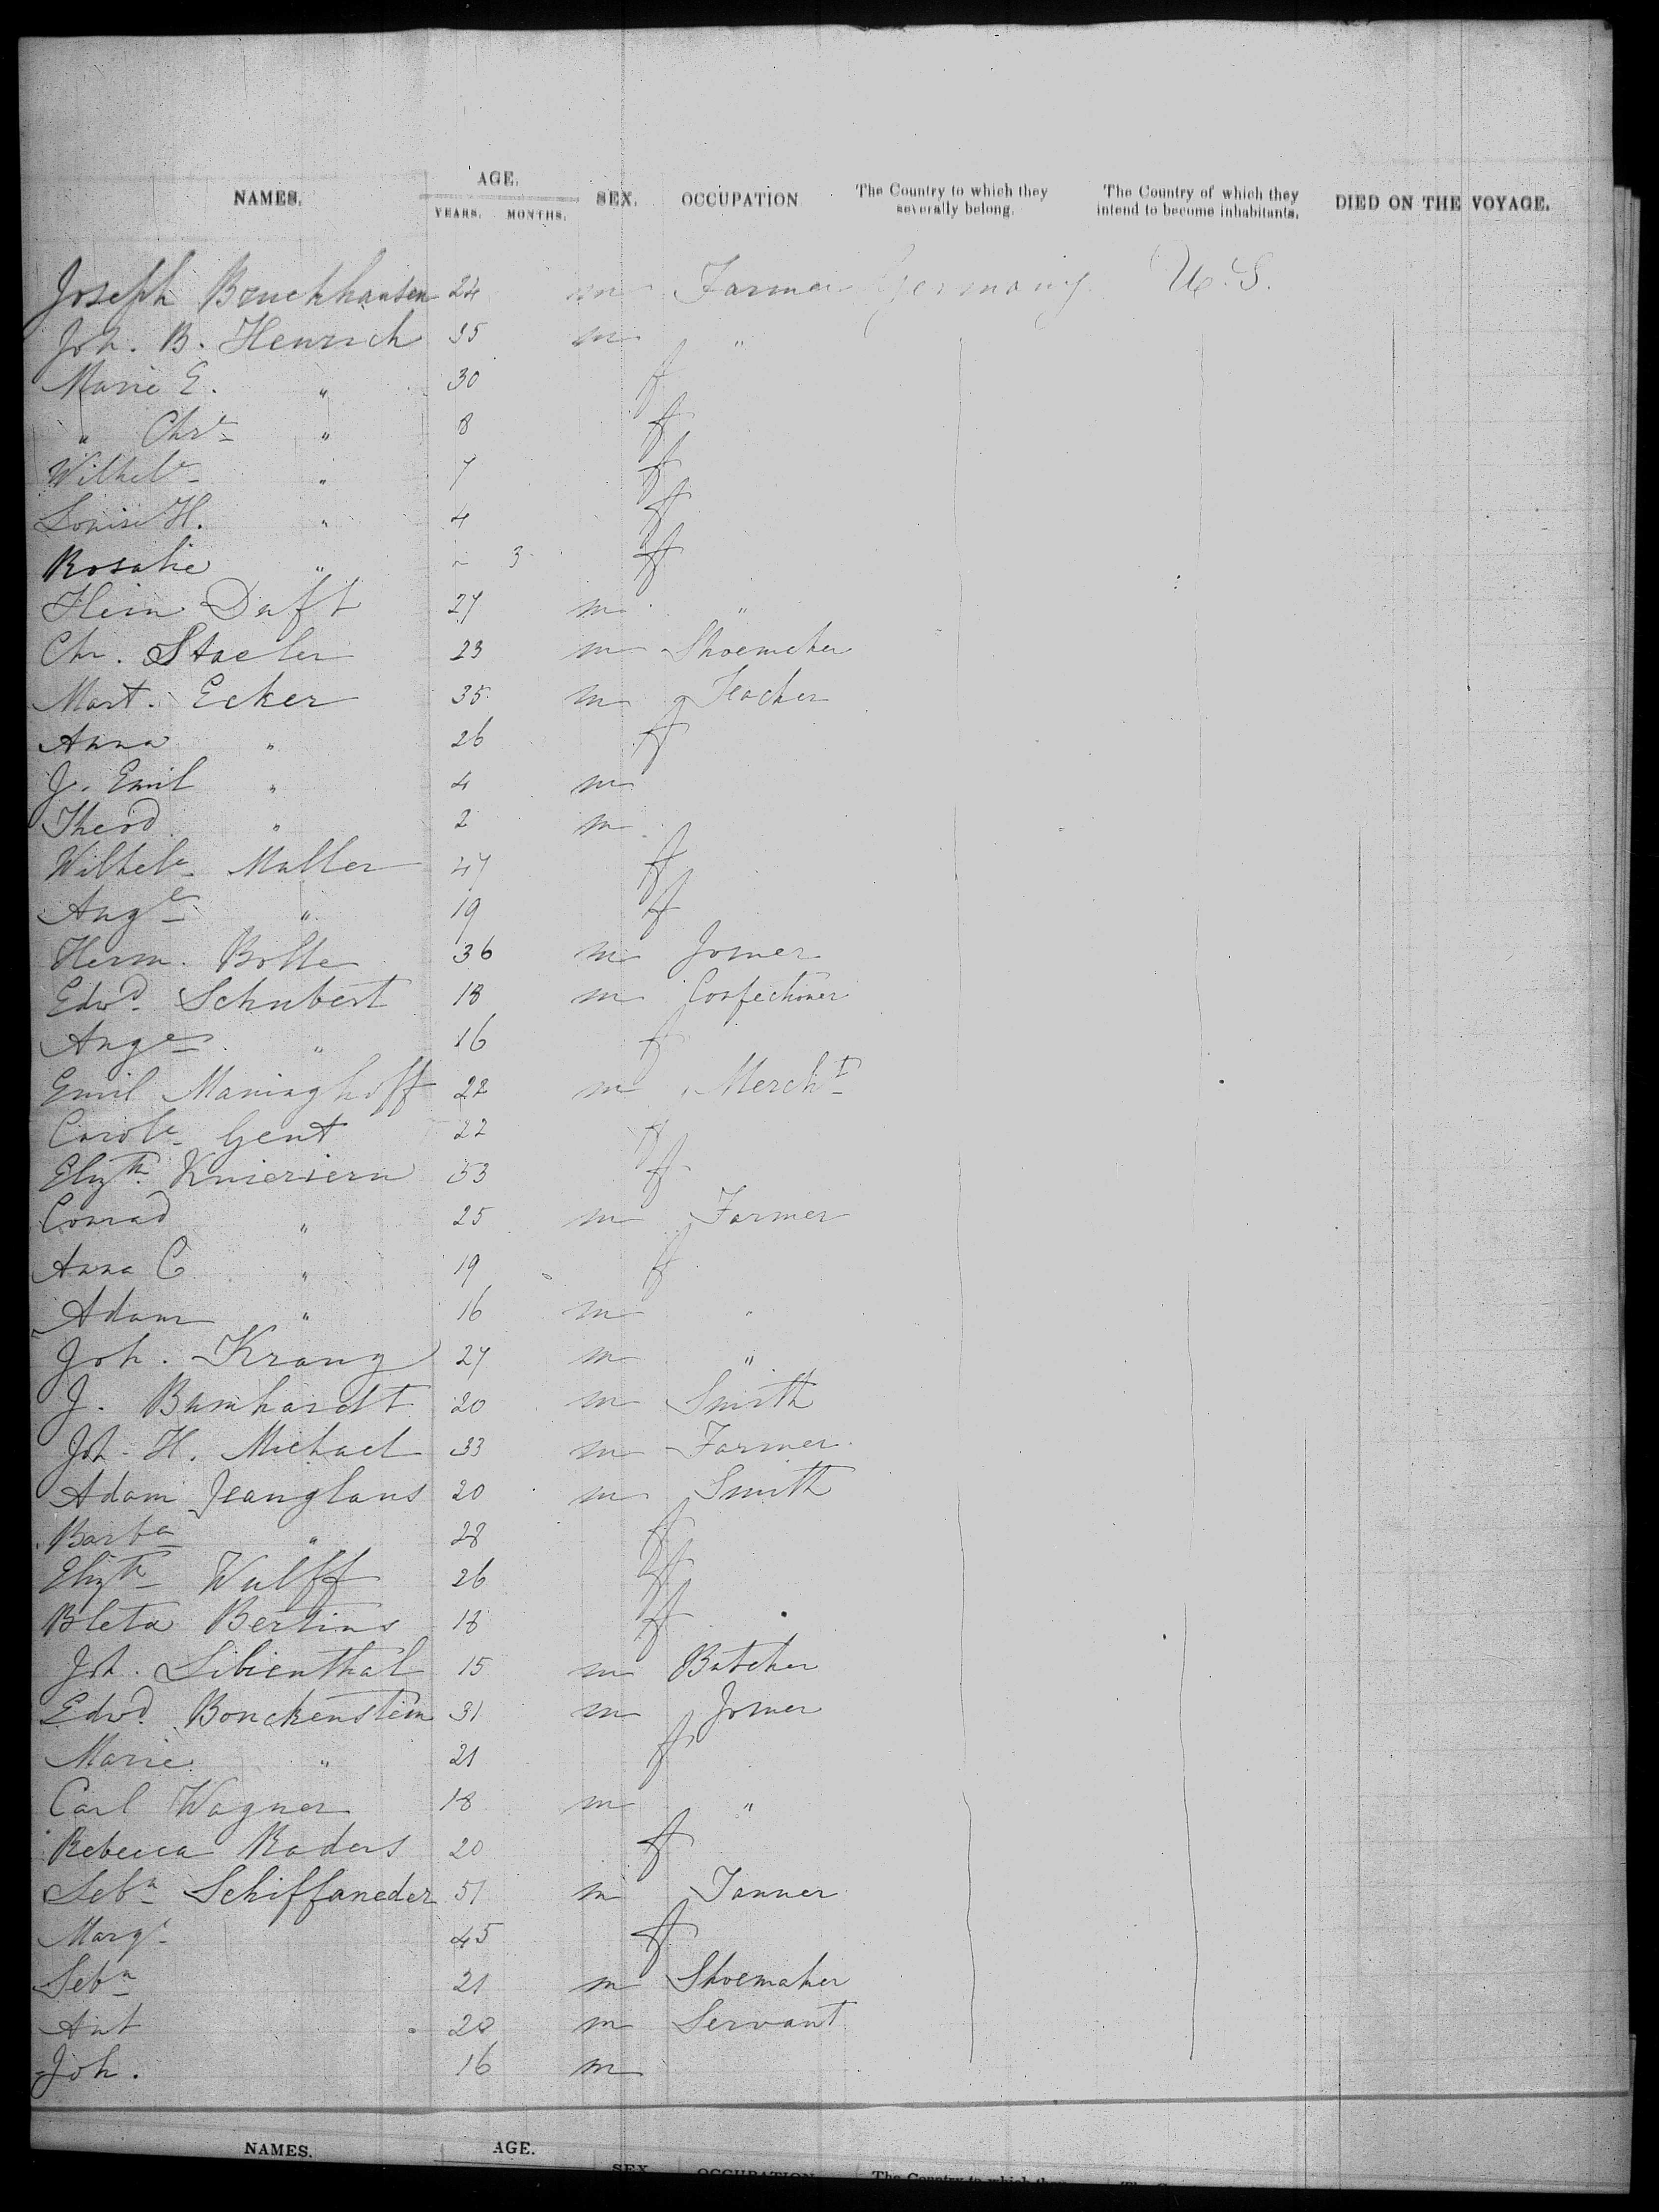 NAMES. AGE. YEARS. MONTHS. SEX. OCCUPATION The Country to which they severally belong. The Country of which they intend to become inhabitants. DIED ON THE VOYAGE.
Joseph Bruckhausen 24 m Farmer Germany U.S.
Joh. B. Henrich 35 m "
Marie E. " 30 f
" Chre " 8 f
Wilhele " 7 f
Louise H. " 4 f
Rosalie " " 3 f
Heinr Duft 27 m "
Chr. Staeler 23 m Shoemaker
Mart. Ecker 35 m Teacher
Anna " 26 f
J. Emil " 4 m
Theod " 2 m
Wilhele Muller 47 f
Auge " 19 f
Herm. Bolle 36 m Joiner
Edwd. Schubert 18 m Confectioner
Auge " 16 f
Emil Maninghoff 22 m Mercht
Carole Gent 22 f
Elizth Knieriem 53 f
Conrad " 25 m Farmer
Anna C " 19 f
Adam " 16 m "
Joh. Krang 27 m "
J. Bamhardt 20 m Smith
Joh. H. Michael 33 m Farmer
Adam Jeanglaus 20 m Smith
Barba " 28 f
Elizth Wulff 26 f
Bleta Bertins 18 f
Joh. Lilienthal 15 m Butcher
Edwd. Bonckenstein 31 m Joiner
Marie " 21 f
Carl Wagner 18 m "
Rebecca Raders 20 f
Seba Schiffaneder 51 m Tanner
Marge 45 f
Seba 21 m Shoemaker
Ant 20 m Servant
Joh. 16 m
NAMES. AGE. SEX OCCUPATION The Country to which they